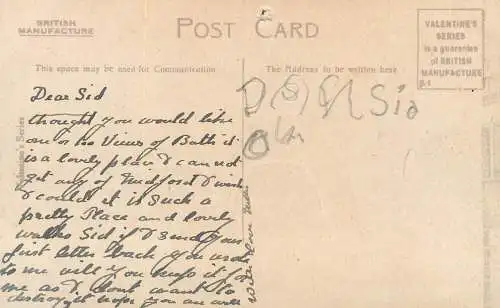 BRITISH
MANUFACTURE
POST CARD
VALENTINE'S
SERIES
is a guarantee
of BRITISH
MANUFACTURE
This space may be used for Communication
The Address to be written here
Valentine's Series
Dear Sid
thought you would like
one or two Views of Bath it
is a lovely place I can not
get any of Midford I wish
I could it is Such a
pretty Place and lovely
walks Sid if I send your
first letter back you wrote
to me will you keep it for
me as I dont want to
destroy it hope you are well
with love from
Sid